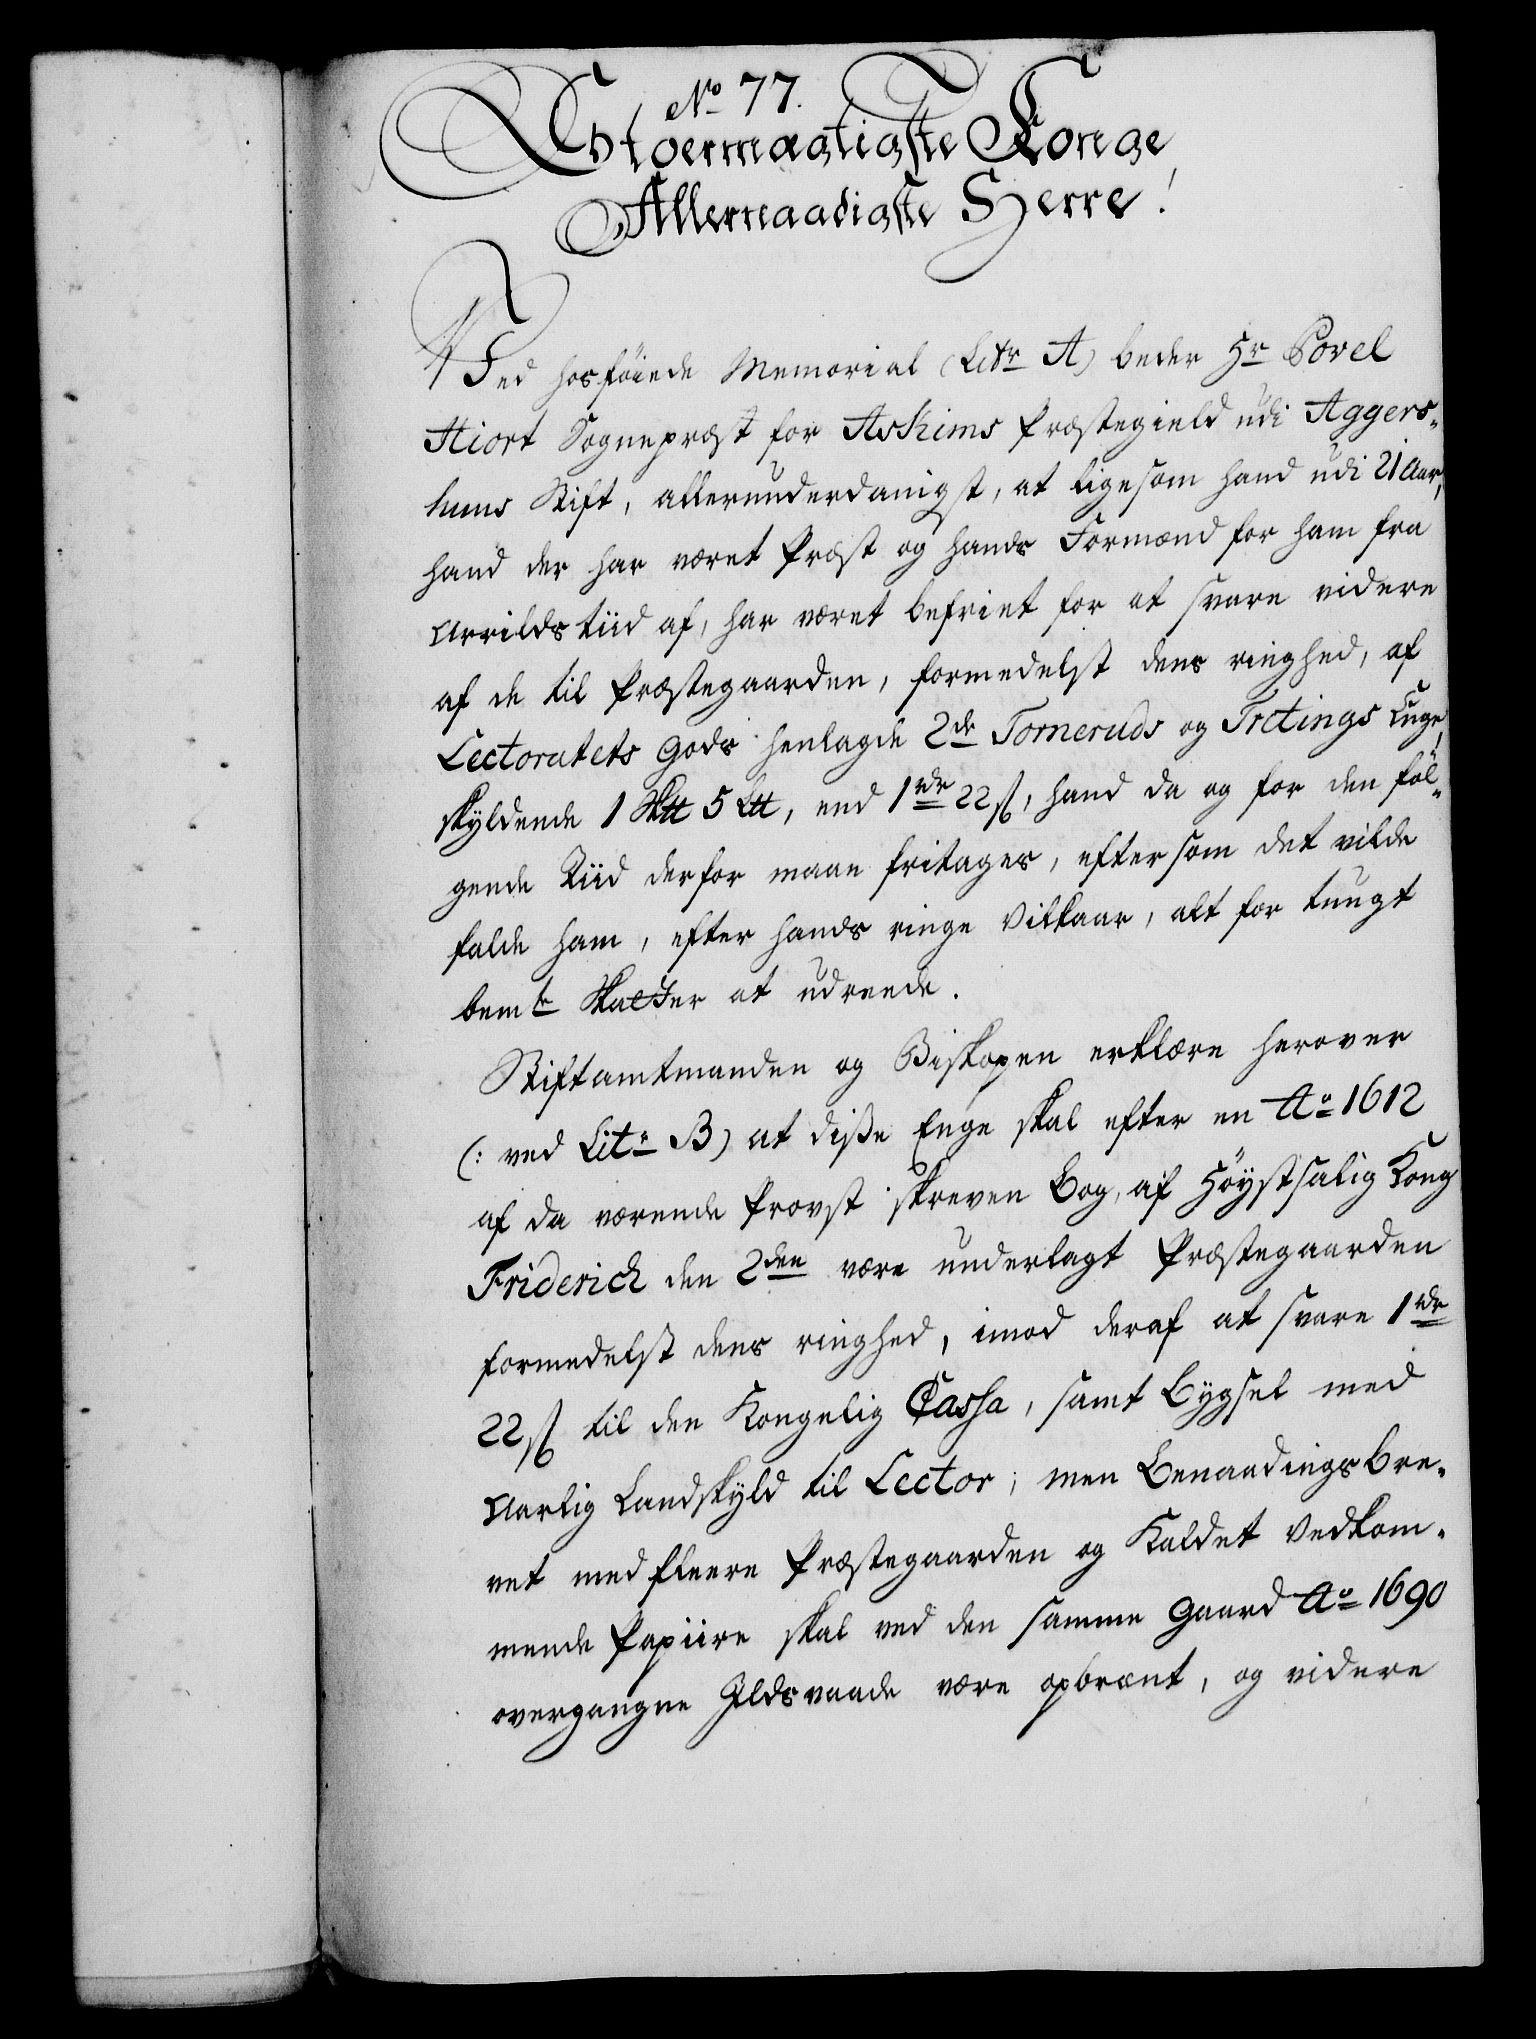 No 77.
Stormægtigste Konge
Allernaadigste Herre!
Ved hosføiede Memorial (Litr A) beder Hr Povel
Hiort Sognepræst for Askims Præstegield udi Aggers-
huus Stift, allerunderdanigst, at ligesom hand udi 21 Aar,
hand der har været Præst og hands Formænd for ham fra
Arrilds tiid af, har været befriet for at svare videre
af de til Præstegaarden, formedelst dens ringhed, af
Lectoratets Gods henlagde 2de Torneruds og Trctings Enge,
skyldende 1 S℔ 5 L℔, end 1 rdr 22 ß, hand da og for den føl-
gende Tiid derfor maae fritages, eftersom det vilde
falde ham, efter hands ringe Vilkaar, alt for tungt
bemte Skatter at udreede.
Stiftamtmanden og Biskopen erklære herover
(: ved Litr B) at disse Enge skal efter en Ao 1612
af da værende Provst skreven Bog, af Høystsalig Kong
Friderich den 2den være underlagt Præstegaarden
formedelst dens ringhed, imod deraf at svare 1 rdr
22 ß til den Kongelig Cassa, samt Bygsel med
Aarlig Landskyld til Lector; men Benaadingsbre-
vet med fleere Præstegaarden og Kaldet Vedkom-
mende Papiire skal ved den samme Gaard Ao 1690
overgangne Ildsvaade være opbrænt, og videre